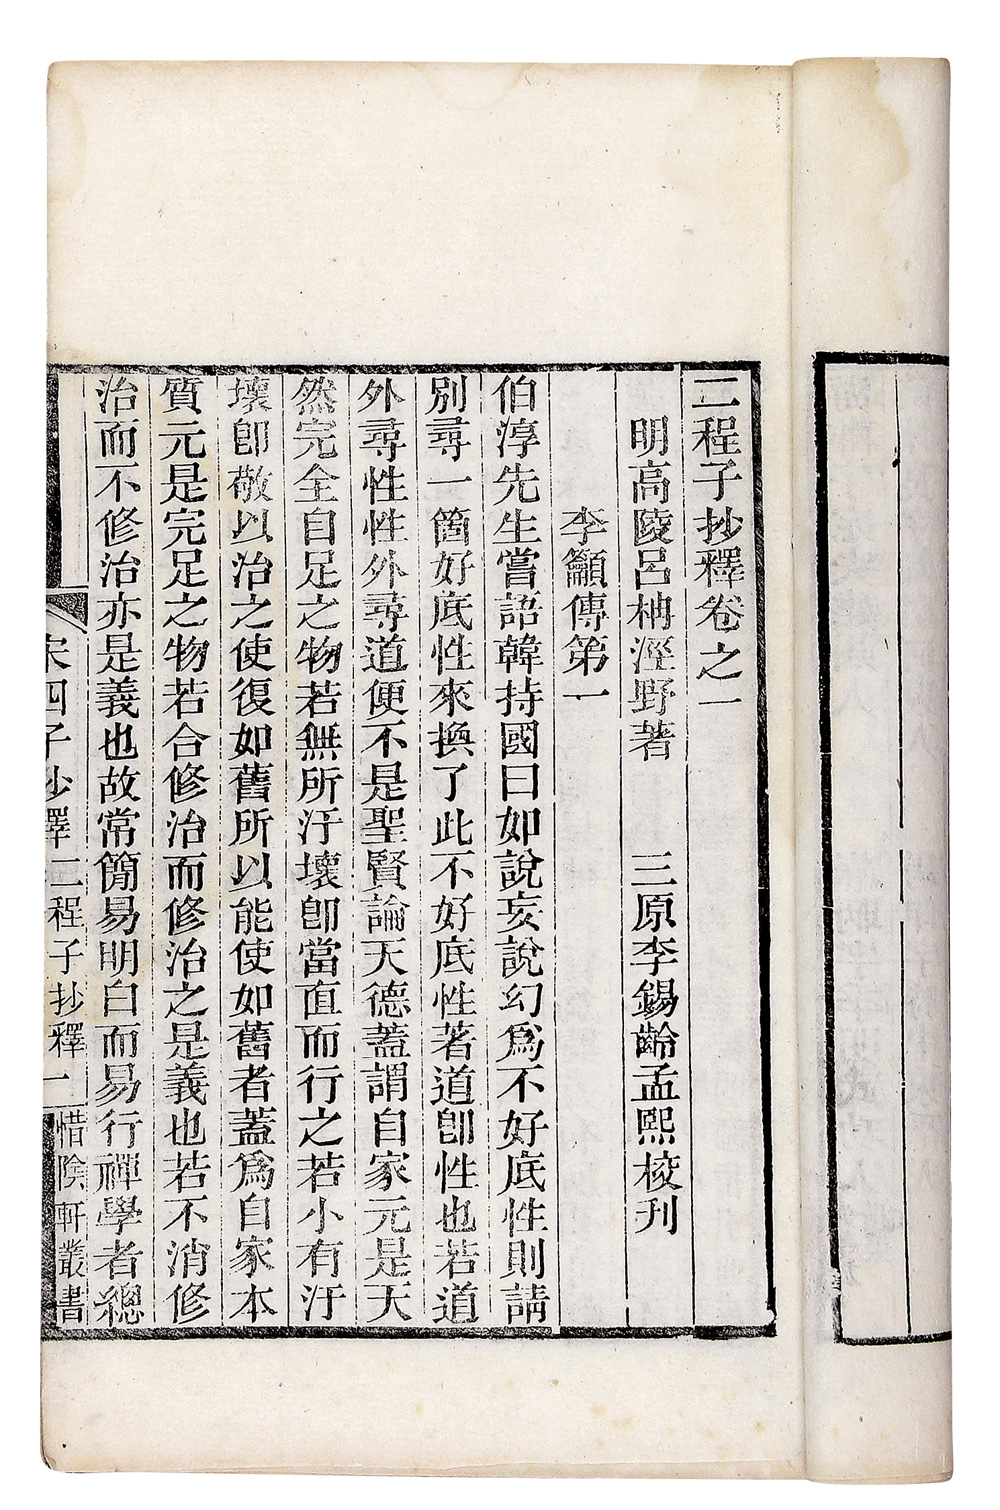 二程子抄釋卷之一
明高陵呂柟涇野著　三原李錫齡孟熙校刊
李籲傳第一
伯淳先生嘗語韓持國曰如說妄說幻爲不好底性則請
別尋一箇好底性來換了此不好底性著道卽性也若道
外尋性性外尋道便不是聖賢論天德蓋謂自家元是天
然完全自足之物若無所汙壞卽當直而行之若小有汙
壞卽敬以治之使復如舊所以能使如舊者蓋爲自家本
質元是完足之物若合修治而修治之是義也若不消修
治而不修治亦是義也故常簡易明白而易行禪學者總
宋四子抄釋二程子抄釋一　惜陰軒叢書